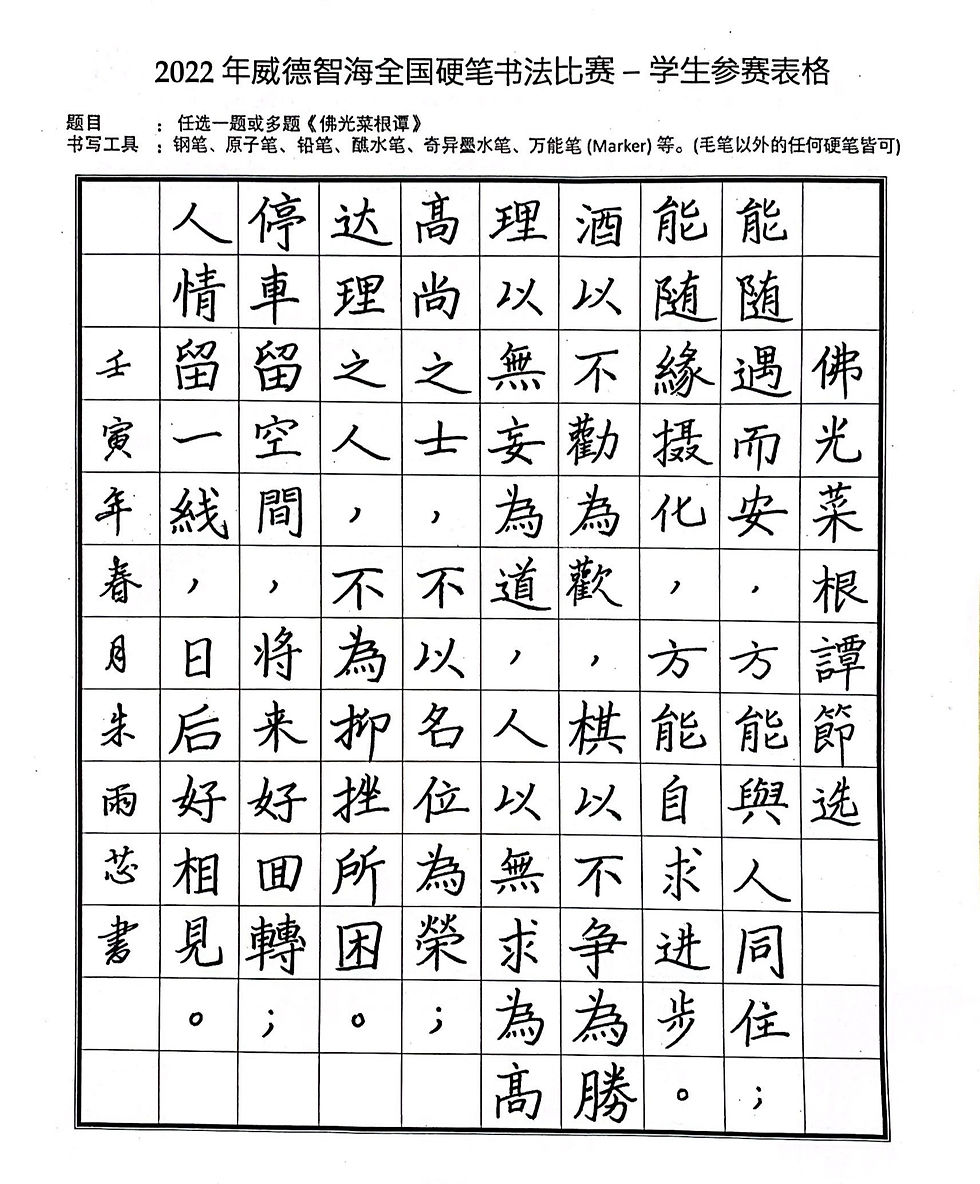 2022 年威德智海全国硬笔书法比赛 – 学生参赛表格
题目 : 任选一题或多题《佛光菜根谭》
书写工具 : 钢笔、原子笔、铅笔、醮水笔、奇异墨水笔、万能笔 (Marker) 等。(毛笔以外的任何硬笔皆可)
佛光菜根譚節选
能随遇而安,方能與人同住;
能随緣摄化,方能自求进步。
酒以不勸為歡,棋以不争為勝
理以無妄為道,人以無求為高
髙尚之士,不以名位為榮;
达理之人,不為抑挫所困。
停車留空間,将来好回轉;
人情留一线,日后好相見。
壬寅年春月朱雨芯書